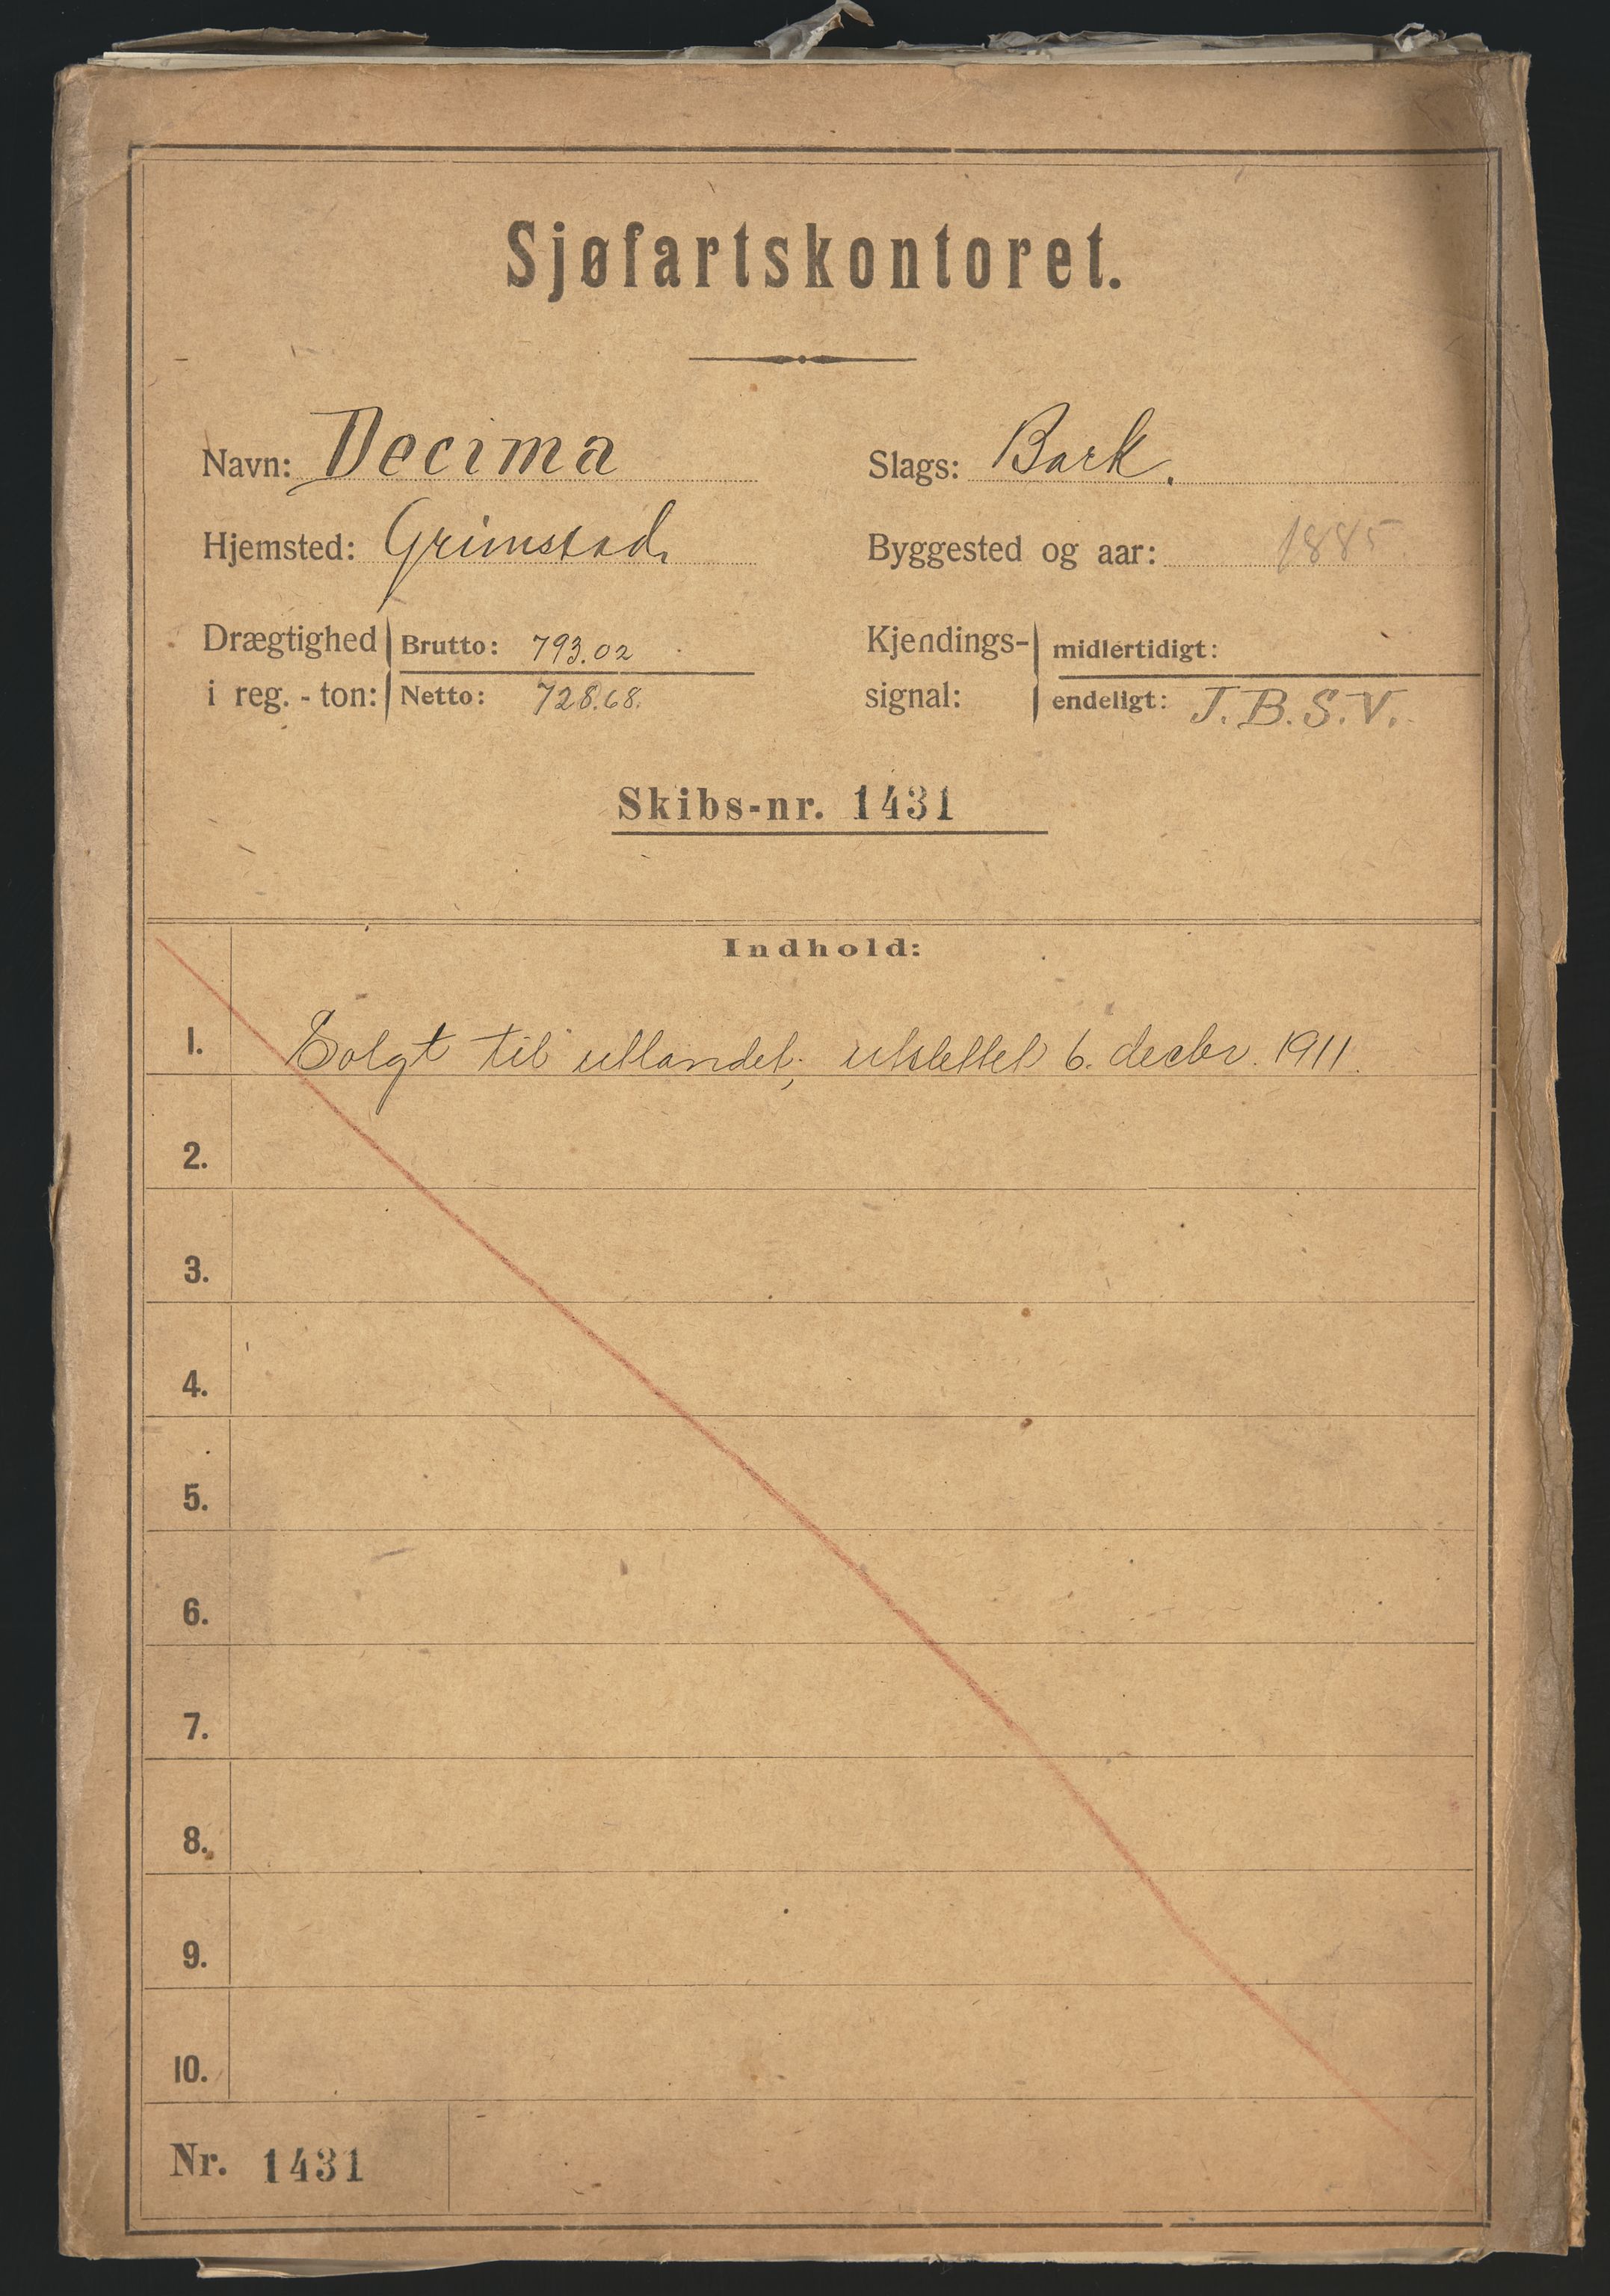 Sjøfartskontoret.
Navn: Decima
Slags: Bark.
Hjemsted: Grimstad,
Byggested og aar: 1885.
Drægtighed i reg. - ton: Brutto: 793.02
Netto: 728.68.
Kjendings-signal: midlertidigt:
endeligt: J.B.S.V.
Skibs-nr. 1431
Indhold:
1. Solgt til utlandet; utslettet 6. decbr. 1911.
2.
3.
4.
5.
6.
7.
8.
9.
10.
Nr. 1431